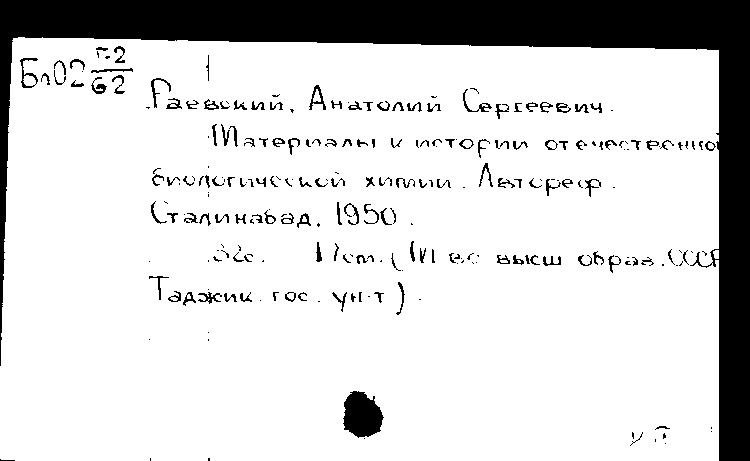 Бл02 Г-2/62
Раевский, Анатолий Сергеевич.
Материалы к истории отечественной
биологической химии. Автореф.
Сталинабад, 1950.
32с. 17см. (М во высш образ. СССР
Таджик. гос. ун-т).